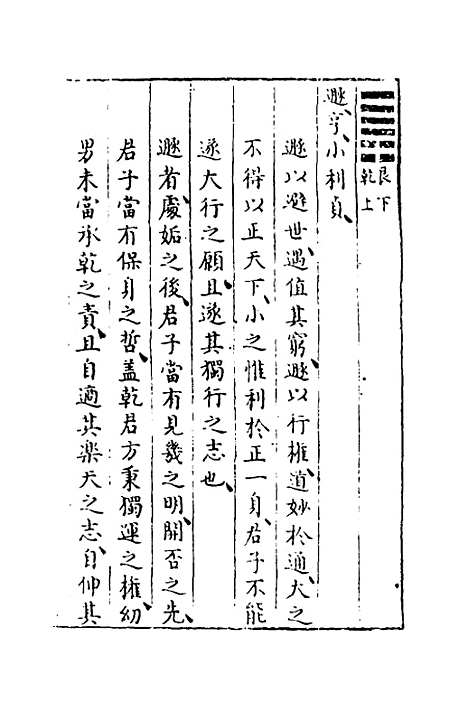 艮下
乾上
遯、亨、小利貞、
遯以避世、遇值其窮、遯以行權、道妙於通、大之
不得以正天下、小之惟利於正一身、君子不能
遂大行之願、且遂其獨行之志也、
遯者、處姤之後、君子當有見幾之明、開否之先、
君子當有保身之哲、蓋乾君方秉獨運之權、幼
男未當承乾之責、且自適其樂天之志、自仰其